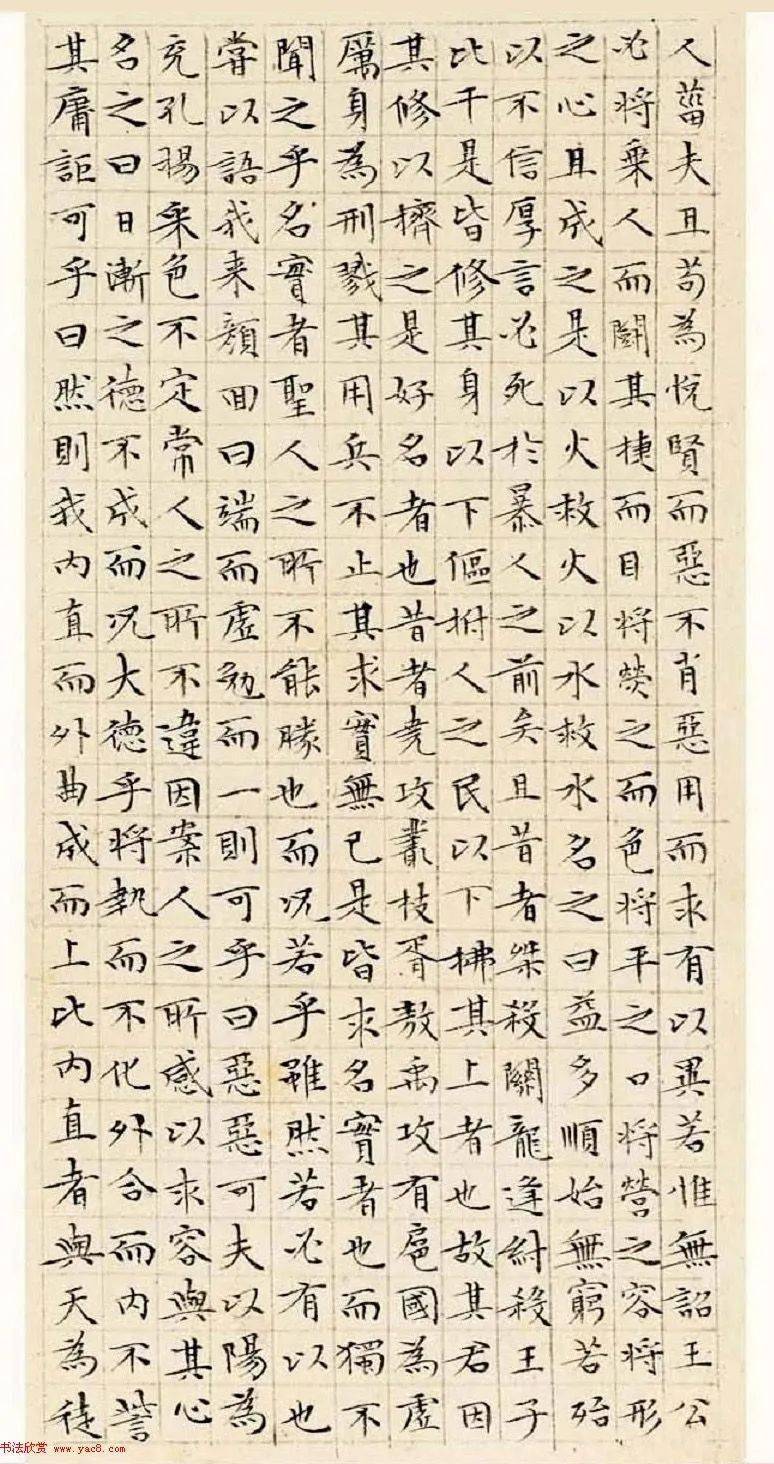 人菑夫且苟為悅賢而惡不肖惡用而求有以異若惟無詔王公
必將乗人而鬪其捷而目將熒之而色將平之口將營之容將形
之心且成之是以火救火以水救水名之曰益多順始無窮若殆
以不信厚言必死於暴人之前矣且昔者桀殺關龍逢紂殺王子
比干是皆修其身以下傴拊人之民以下拂其上者也故其君因
其修以擠之是好名者也昔者堯攻叢枝胥敖禹攻有扈國為虛
厲身為刑戮其用兵不止其求實無已是皆求名實者也而獨不
聞之乎名實者聖人之所不能勝也而況若乎雖然若必有以也
嘗以語我来顏回曰端而虛勉而一則可乎曰惡惡可夫以陽為
充孔揚采色不定常人之所不違因案人之所感以求容與其心
名之曰日漸之德不成而況大德乎將執而不化外合而內不訾
其庸詎可乎曰然則我內直而外曲成而上比內直者與天為徒
书法欣赏 www.yac8.com